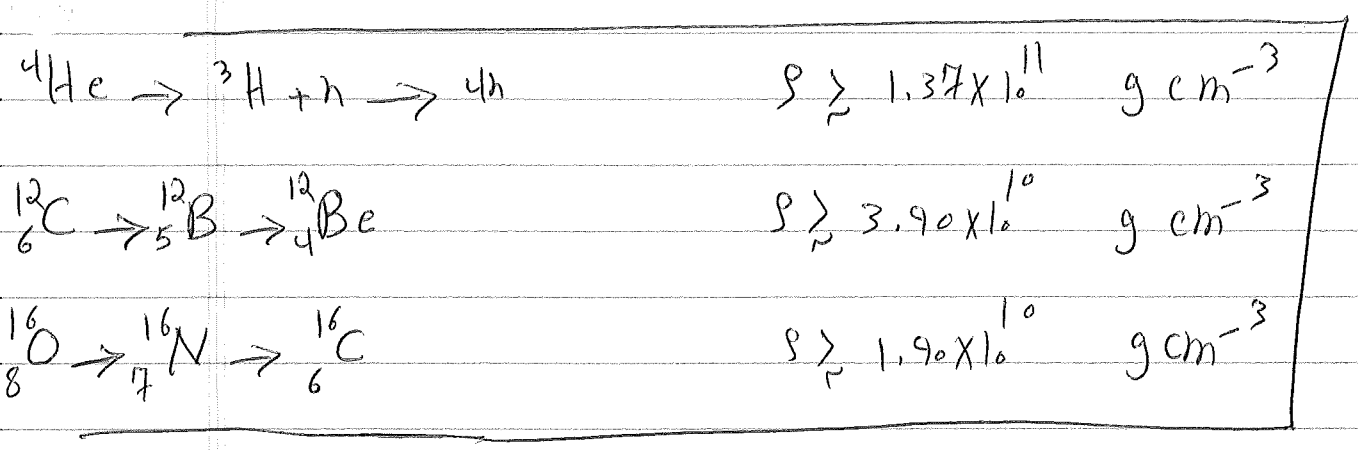 ⁴He → ³H + n → 4n ρ ≳ 1.37×10¹¹ g cm⁻³
¹²₆C → ¹²₅B → ¹²₄Be ρ ≳ 3.90×10¹⁰ g cm⁻³
¹⁶₈O → ¹⁶₇N → ¹⁶₆C ρ ≳ 1.90×10¹⁰ g cm⁻³